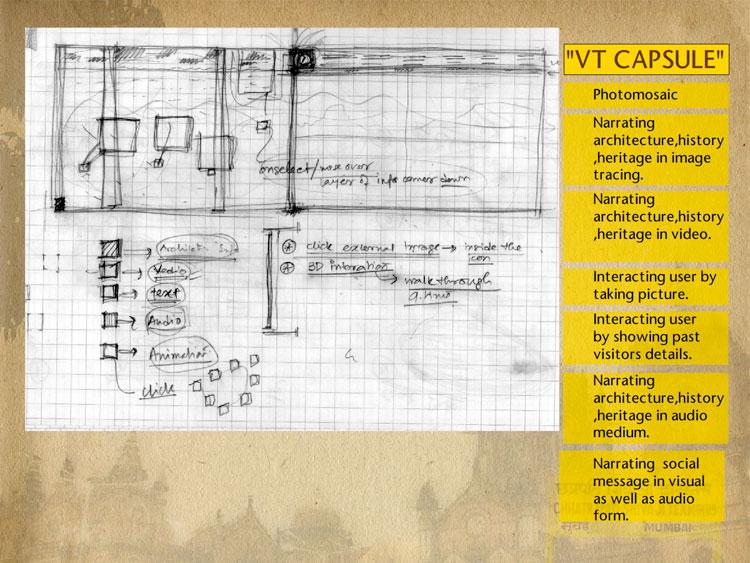 "VT CAPSULE"
Photomosaic
Narrating
architecture,history
,heritage in image
tracing.
Narrating
architecture,history
,heritage in video.
Interacting user by
taking picture.
Interacting user
by showing past
visitors details.
Narrating
architecture,history
,heritage in audio
medium.
Narrating social
message in visual
as well as audio
form.
MUMBAI
onselect/mose over
layer of info comes down
Vedio
text
Audio
click
click external image → inside the
3D intration
walkthrough